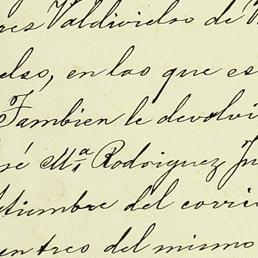 res Valdivielso de
elso, en las que es
Tambien le devolvi
sé Mª Rodriguez
tiembre del corri
entres del mismo